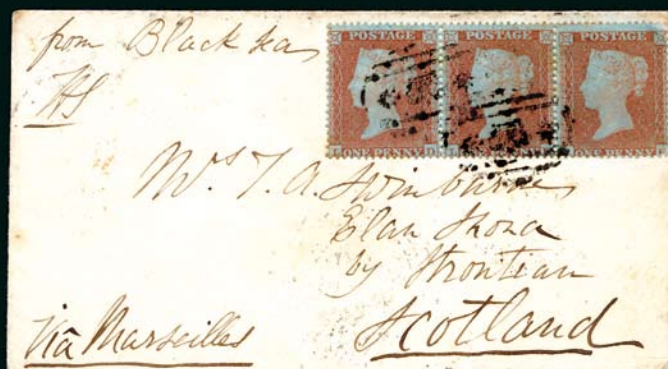 from Black Sea
HS
POSTAGE POSTAGE POSTAGE
ONE PENNY ONE PENNY ONE PENNY
Mrs. T. A. Swinburne
Elan Shona
by Strontian
Scotland
Via Marseilles